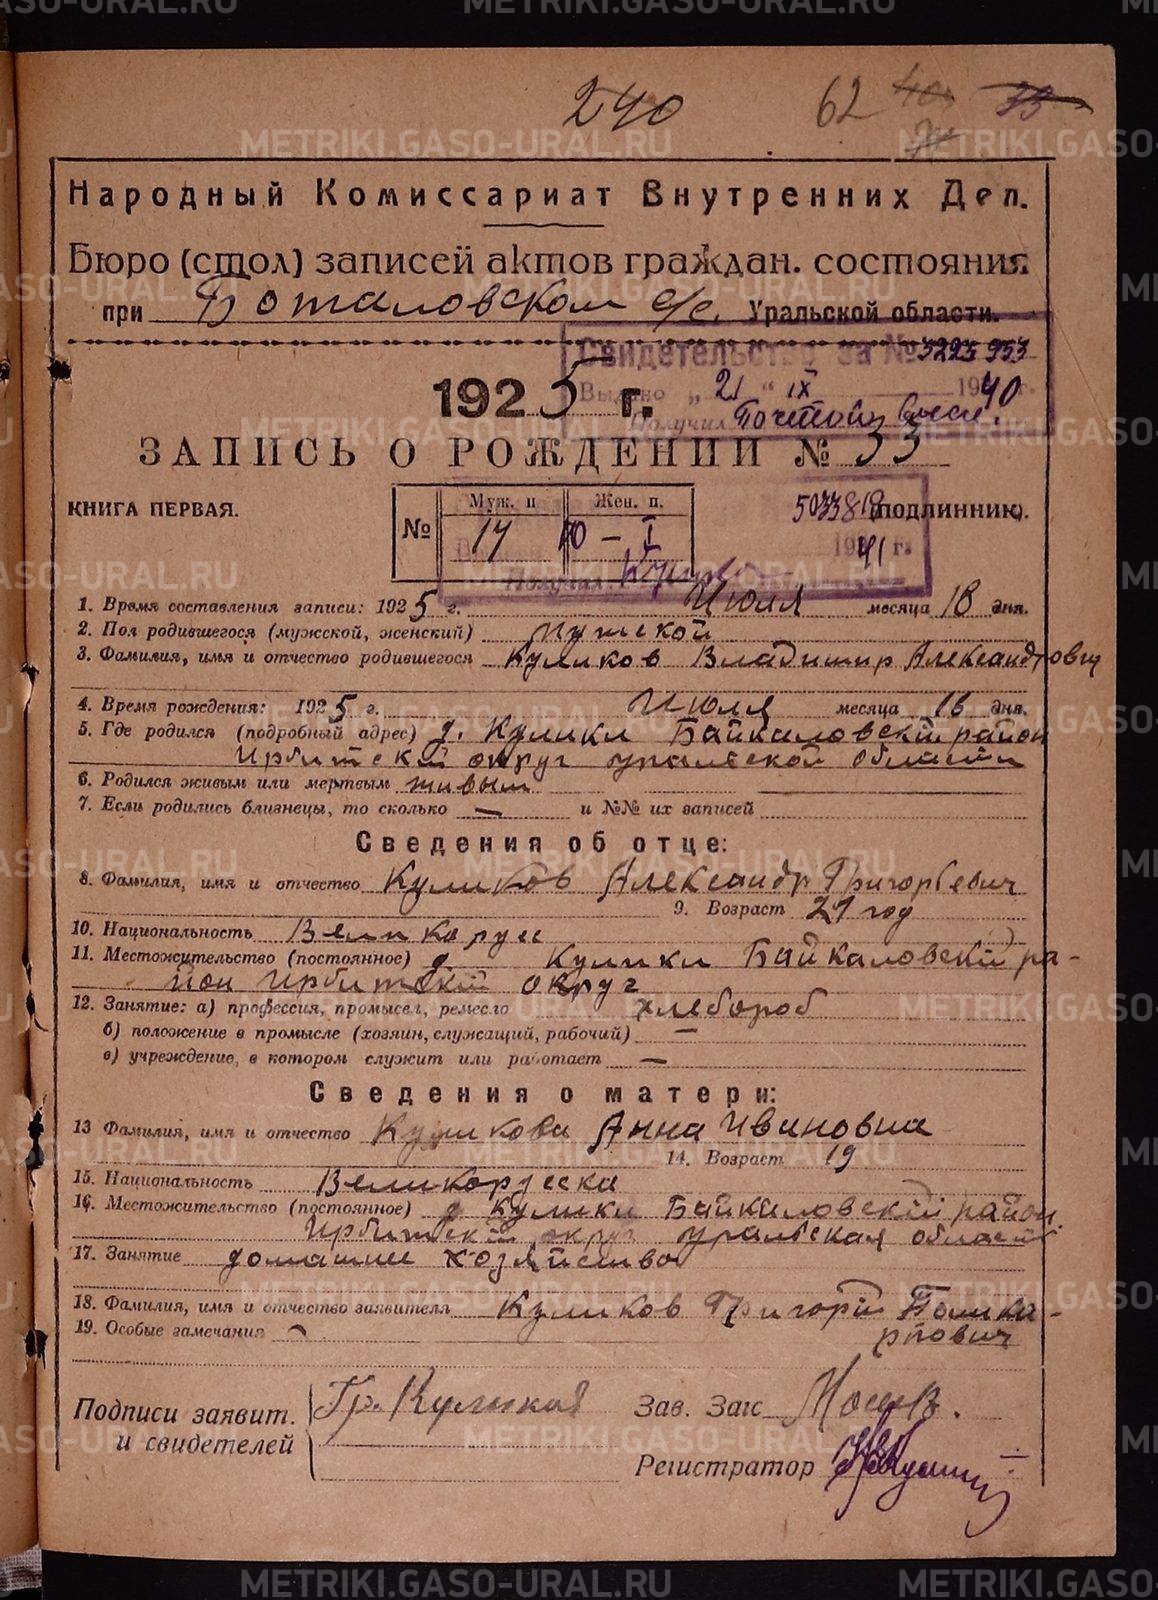 240 62 40 33
Народный Комиссариат Внутренних Дел.
Бюро (стол) записей актов граждан. состояния
при Боталовском с/с. Уральской области.
Свидетельство за № 3293953
Выдано „21“ IX 1940 г.
1925 г.
Получил Почтой
ЗАПИСЬ О РОЖДЕНИИ № 33
КНИГА ПЕРВАЯ.
№ Муж. п Жен. п.
17
(подлинник).
1941 г.
Получил
1. Время составления записи: 1925 г. Июля месяца 18 дня.
2. Пол родившегося (мужской, женский) мужской
3. Фамилия, имя и отчество родившегося Куликов Владимир Александрович
4. Время рождения: 1925 г. Июля месяца 16 дня.
5. Где родился (подробный адрес) д. Кулики Байкаловскій район
Ирбитскій округ уральской области
6. Родился живым или мертвым живым
7. Если родились близнецы, то сколько — и №№ их записей
Сведения об отце:
8. Фамилия, имя и отчество Куликов Александр Григорьевич
9. Возраст 21 год
10. Национальность Великорусс
11. Местожительство (постоянное) д Кулики Байкаловскій ра-
йон Ирбитскій округ
12. Занятие: а) профессия, промысел, ремесло хлебороб
б) положение в промысле (хозяин, служащий, рабочий) —
в) учреждение, в котором служит или работает —
Сведения о матери:
13 Фамилия, имя и отчество Куликова Анна Ивановна
14. Возраст 19
15. Национальность Великорусска
16. Местожительство (постоянное) д Кулики Байкаловскій район.
Ирбитскій округ уральская область
17. Занятие домашнее хозяйство
18. Фамилия, имя и отчество заявителя Куликов Григорій Полика-
рпович
19. Особые замечания —
Подписи заявит.
и свидетелей
Гр. Куликов
Зав. Загс
Регистратор
METRIKI.GASO-URAL.RU